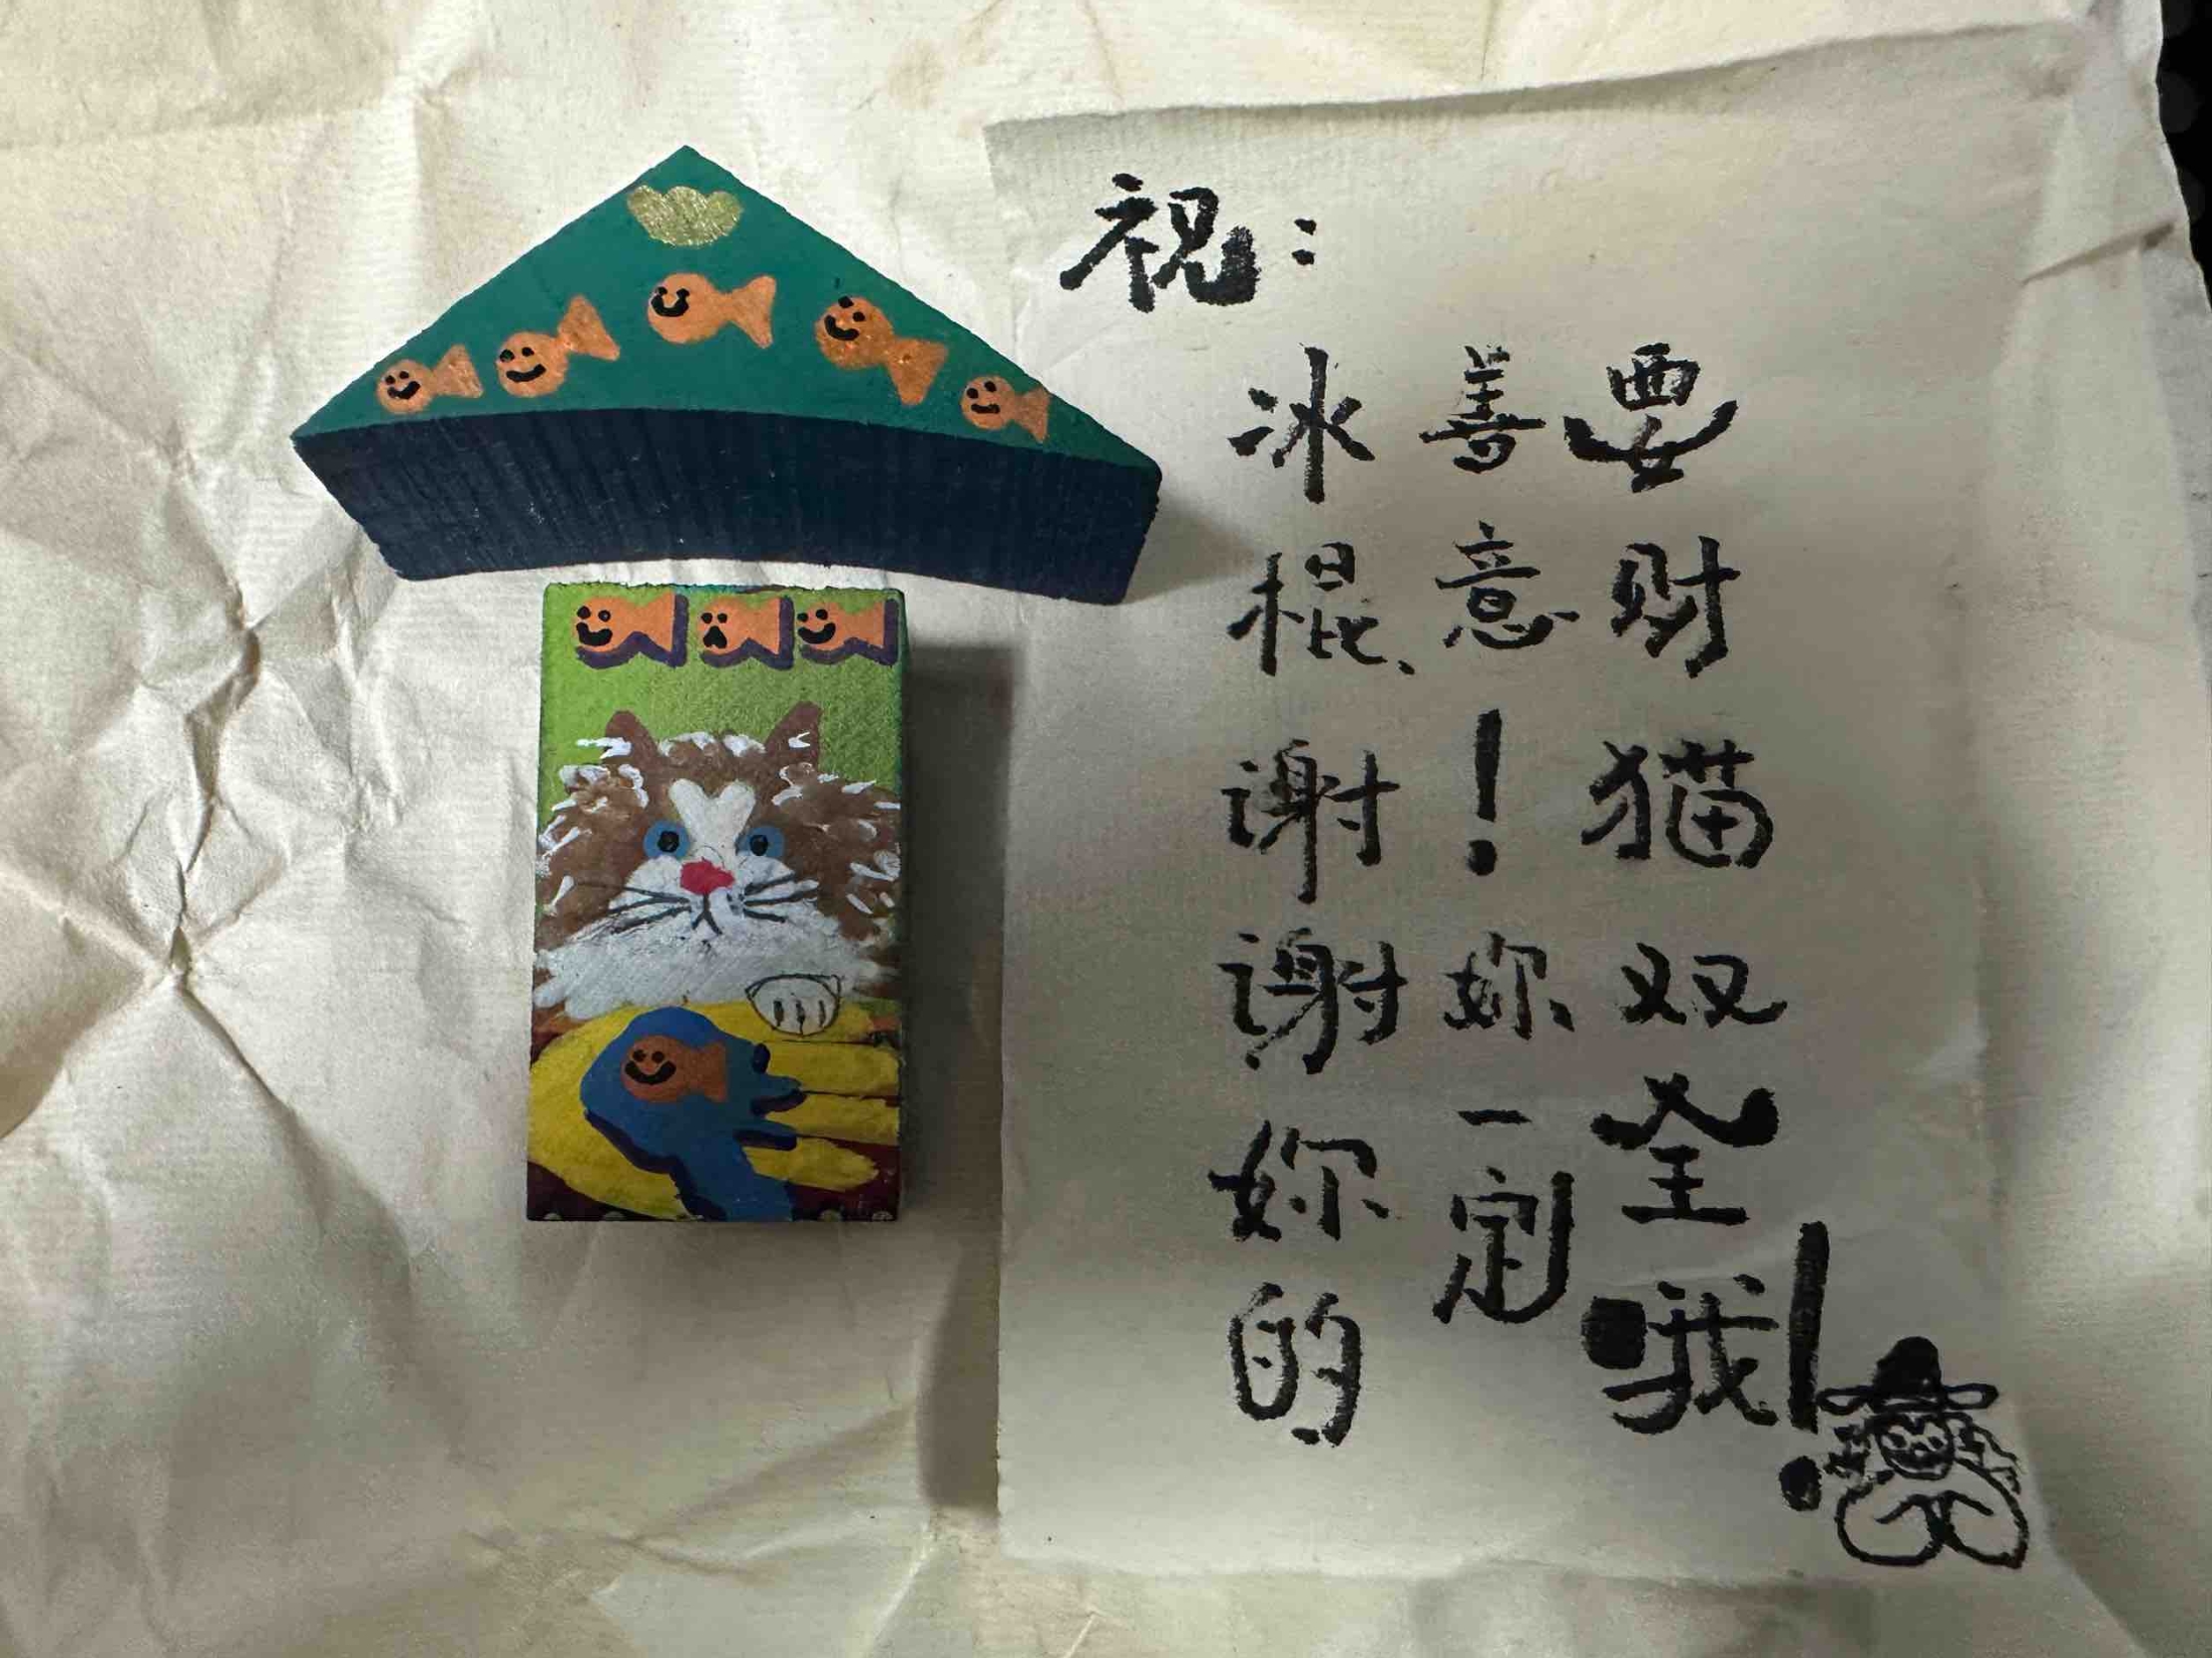 祝：
冰棍、谢谢妳的
善意！妳一定
要财猫双全哦！